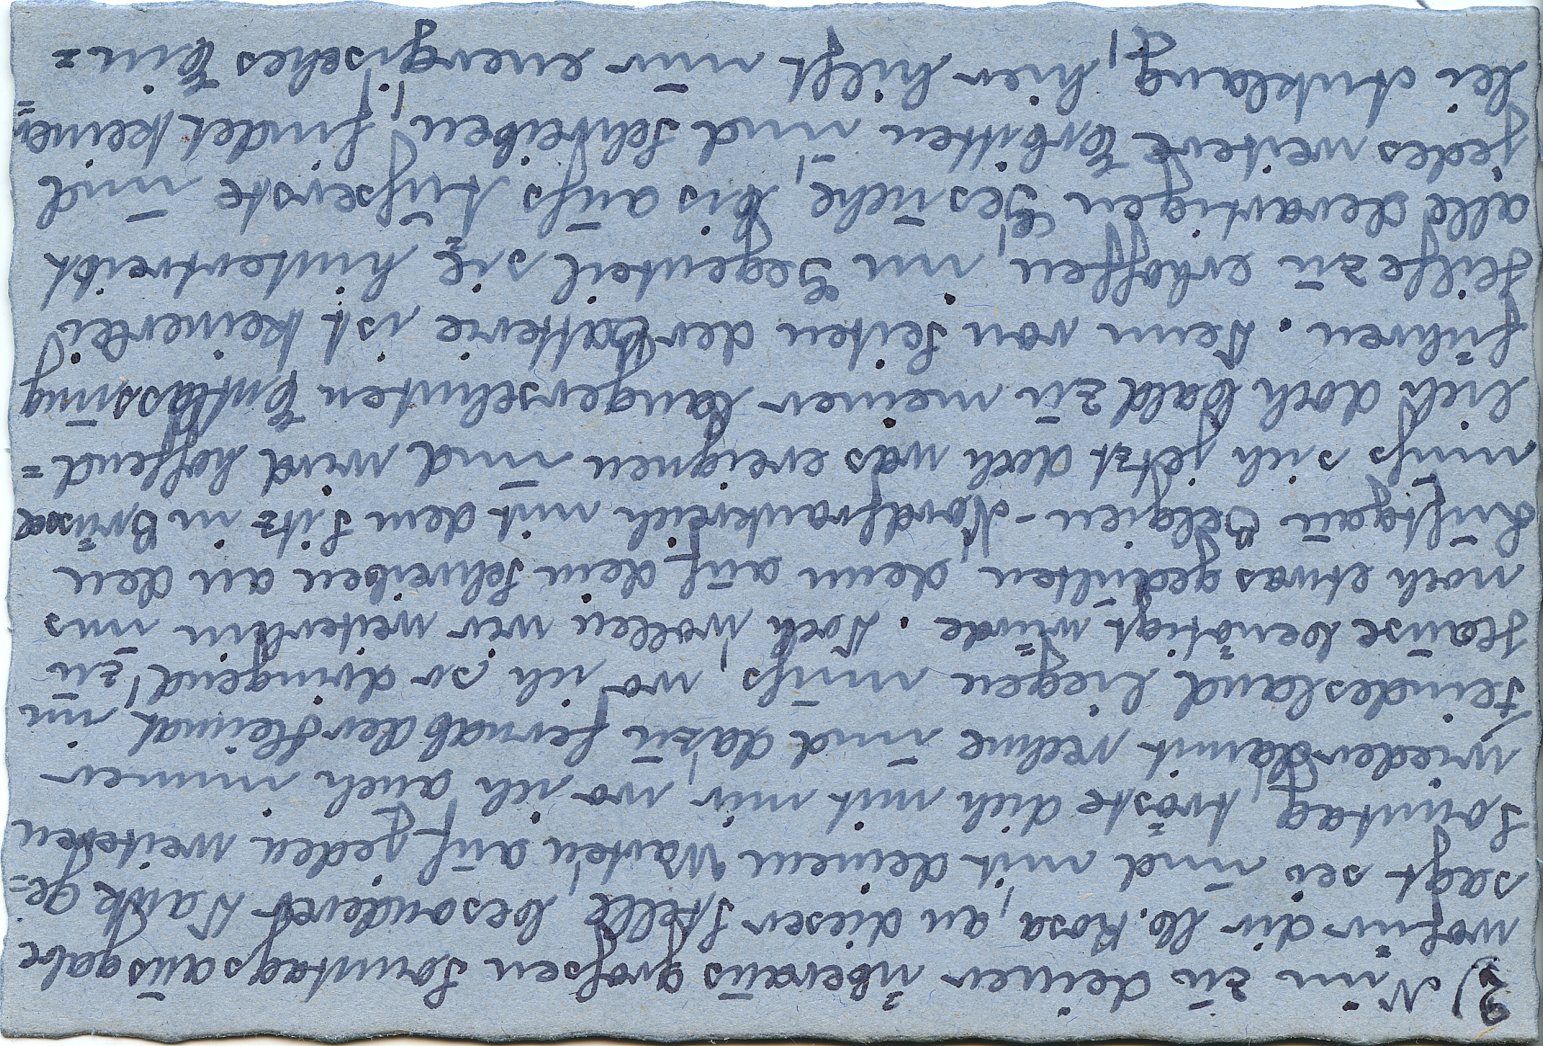 3)
Nun zu deiner überaus großen Sonntagsausgabe
wofür dir lb. Rosa, an dieser Stelle besonderer Dank ge=
sagt sei und mit deinem Warten auf jeden weiteren
Sonntag, tröste dich mit mir, wo ich auch immer
wieder damit rechne und dazu fernab der Heimat im
Feindesland liegen muß, wo ich so dringend, zu
Hause benötigt würde. Doch wollen wir weiterhin uns
noch etwas gedulten, denn auf dem Schreiben an den
Luftgau Belgien-Nordfrankreich mit dem Sitz in Brüssel
muß sich jetzt doch was ereignen und wird hoffend=
lich doch bald zu meiner langersehnten Entlassung
führen. Denn von Seiten der Batterie ist keinerlei
Hilfe zu erhoffen, im Gegenteil sie hintertreibt
alle derartigen Gesuche, bis aufs Äußerste und
jedes weitere Erbitten und Schreiben, findet keiner=
lei Anklang, hier hilft nur energisches Ein=